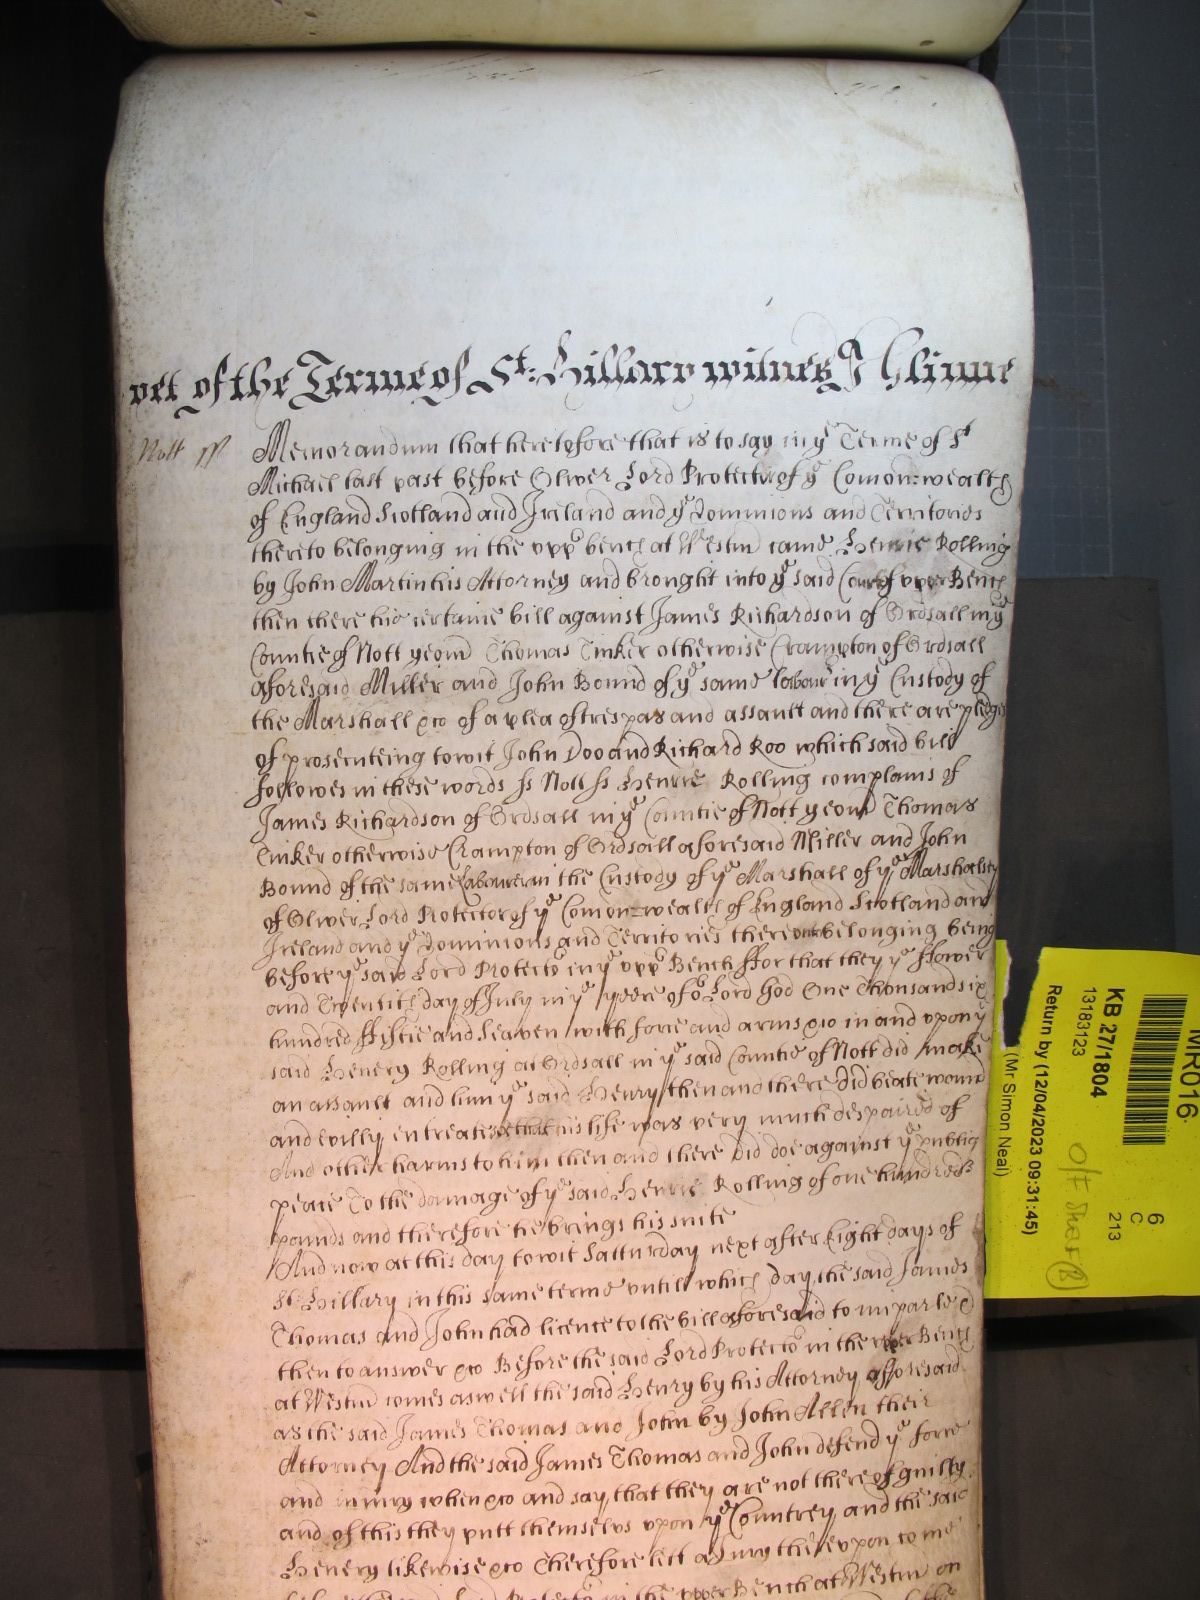 yet of the Terme of St: Hillary witnes J Glinne
Nott ss Memorandum that heretofore that is to say in ye Terme of St
Michael last past before Oliver Lord Protector of ye Comon:wealth
of England Scotland and Ireland and ye Dominions and Territories
thereto belonging in the uppr bench at Westm came Henrie Rolling
by John Martin his Attorney and brought into ye said Court of upper Bench
then there his certaine bill against James Richardson of Ordsall in ye
Countie of Nott yeom Thomas Tinker otherwise Crampton of Ordsall
aforesaid Miller and John Bound of ye same labourr in ye Custody of
the Marshall &c of a plea of trespas and assault and there are pledges
of prosecuteing to wit John Doo and Richard Roo which said bill
followes in these words ss Nott ss Henrie Rolling complains of
James Richardson of Ordsall in ye Countie of Nott yeom Thomas
Tinker otherwise Crampton of Ordsall aforesaid Miller and John
Bound of the same labourer in the Custody of ye Marshall of ye Marshalsey
of Oliver Lord Protector of ye Comon=wealth of England Scotland and
Ireland and ye Dominions and Territories thereunto belonging being
before ye said Lord Protector in ye uppr Bench ffor that they ye ffower
and Twentith day of July in ye yeere of or Lord God One Thousand six
hundred ffiftie and Seaven with force and arms &c in and upon ye
said Henery Rolling at Ordsall in ye said Countie of Nott did make
an assault and him ye said Henry then and there did beate wound
and evilly entreate soe that his life was very much despaired of
And other harms to him then and there did doe against ye publiq
peace To the damage of ye said Henrie Rolling of one hundred
pounds and therefore he brings his suite
And now at this day to wit Satturday next after Eight days of
St: Hillary in this same terme untill which day the said James
Thomas and John had licence to the bill aforesaid to imparle &
then to answer &c Before the said Lord Protector in the upper Bench
at Westm comes aswell the said Henry by his Attorney afforesaid
as the said James Thomas and John by John Allen their
Attorney And the said James Thomas and John defend ye force
and iniury when &c and say that they are not thereof guilty
and of this they putt themselvs upon ye Countrey and the said
Henery likewise &c Therefore lett a Jury thereupon come
Protector in the upper Bench at Westm on
MR016
KB 27/1804
13183123
6
C
213
Return by (12/04/2023 09:31:45)
(Mr Simon Neal)